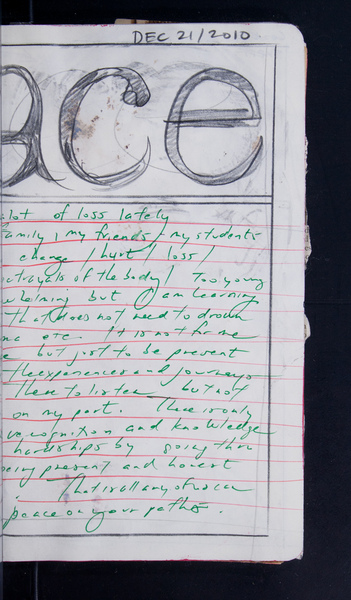 DEC 21/2010
ace
alot of loss lately
family, my friends, my students
change / hurt / loss /
of the body! Too young
but I am learning
that does not need to drown
etc. It is not for me
but just to be present
the experiences and journeys
there to listen but not
on my part. There is only
recognition and knowledge
hardships by going thru
being present and honest
. That is all any of us can
peace on your paths.